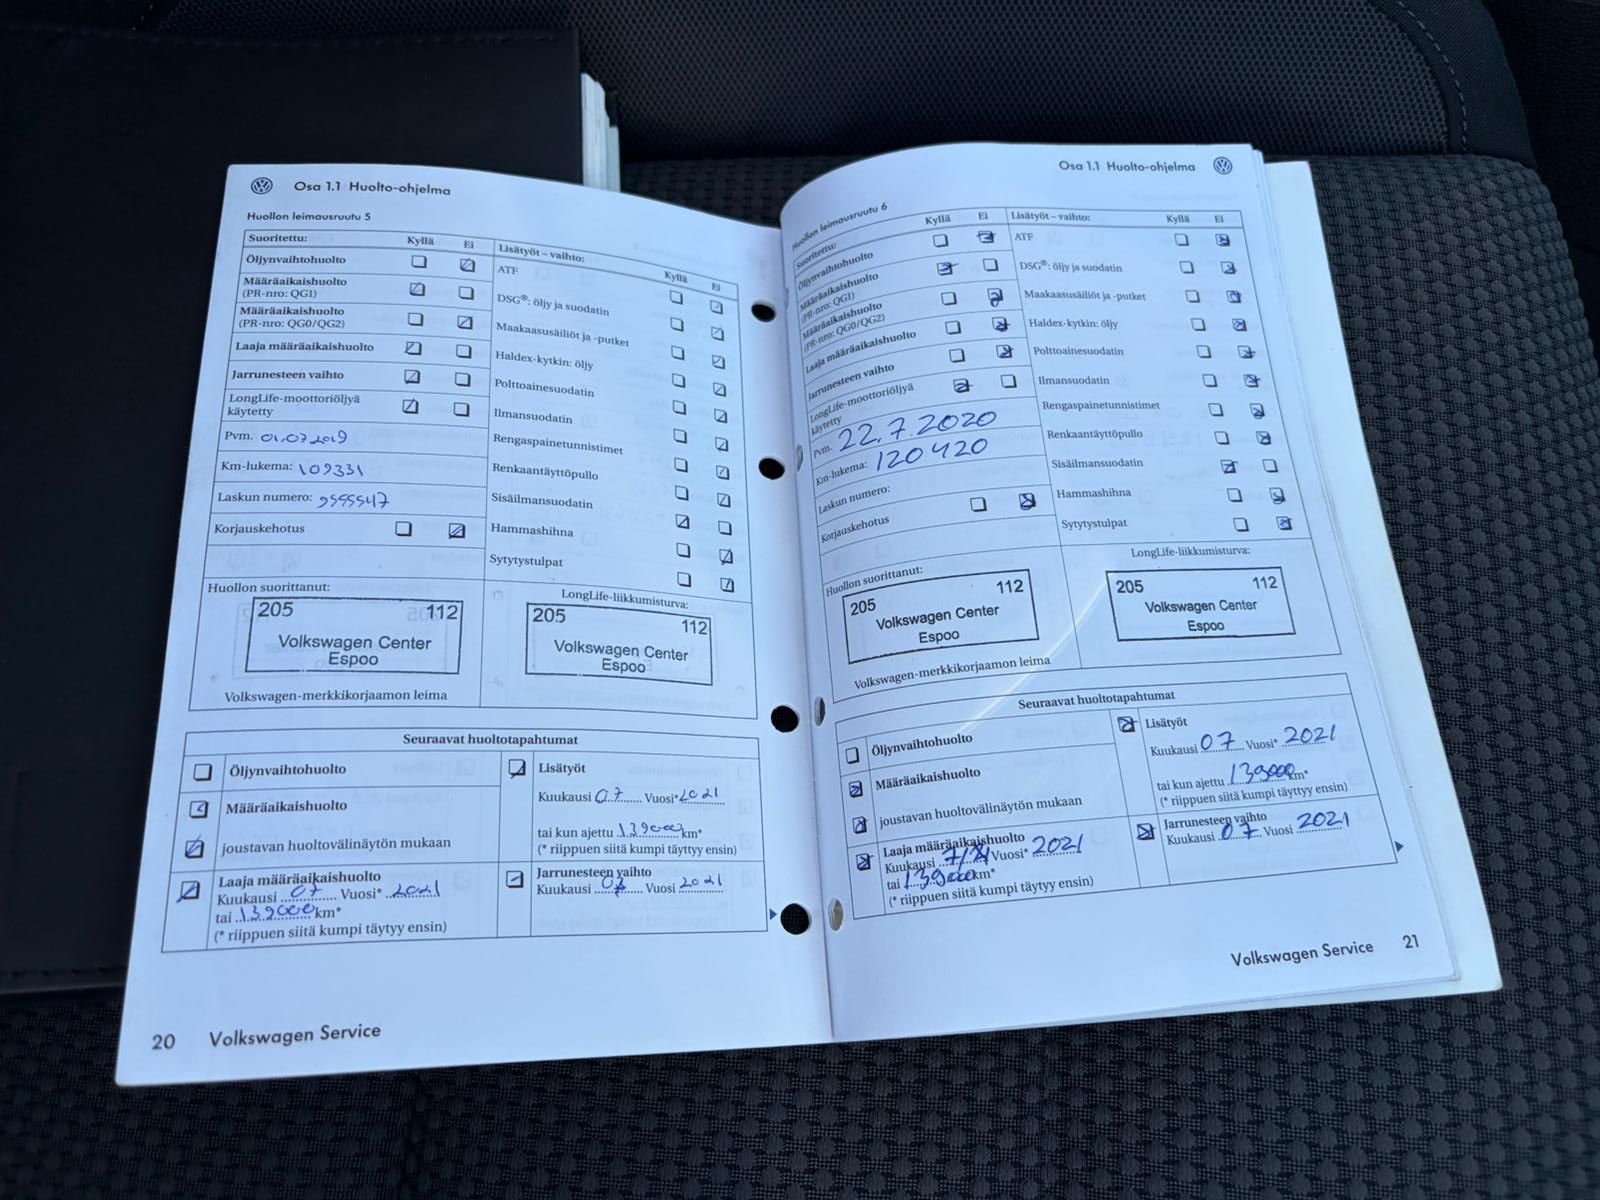 Osa 1.1 Huolto-ohjelma
Huollon leimausruutu 5
Suoritettu: Kyllä Ei
Öljynvaihtohuolto
Määräaikaishuolto
(PR-nro: QG1)
Määräaikaishuolto
(PR-nro: QG0/QG2)
Laaja määräaikaishuolto
Jarrunesteen vaihto
LongLife-moottoriöljyä
käytetty
Pvm. 01.07.2019
Km-lukema: 109331
Laskun numero: 9555547
Korjauskehotus
Lisätyöt – vaihto: Kyllä Ei
ATF
DSG®: öljy ja suodatin
Maakaasusäiliöt ja -putket
Haldex-kytkin: öljy
Polttoainesuodatin
Ilmansuodatin
Rengaspainetunnistimet
Renkaantäyttöpullo
Sisäilmansuodatin
Hammashihna
Sytytystulpat
Huollon suorittanut:
205 112
Volkswagen Center
Espoo
Volkswagen-merkkikorjaamon leima
LongLife-liikkumisturva:
205
112
Volkswagen Center
Espoo
Seuraavat huoltotapahtumat
Öljynvaihtohuolto
Määräaikaishuolto
joustavan huoltovälinäytön mukaan
Laaja määräaikaishuolto
Kuukausi 07 Vuosi* 2021
tai 139000 km*
(* riippuen siitä kumpi täytyy ensin)
Lisätyöt
Kuukausi 07 Vuosi* 2021
tai kun ajettu 139000 km*
(* riippuen siitä kumpi täytyy ensin)
Jarrunesteen vaihto
Kuukausi 07 Vuosi 2021
20 Volkswagen Service
Osa 1.1 Huolto-ohjelma
Huollon leimausruutu 6
Suoritettu: Kyllä Ei
Öljynvaihtohuolto
Määräaikaishuolto
(PR-nro: QG1)
Määräaikaishuolto
(PR-nro: QG0/QG2)
Laaja määräaikaishuolto
Jarrunesteen vaihto
LongLife-moottoriöljyä
käytetty
Pvm. 22.7.2020
Km-lukema: 120420
Laskun numero:
Korjauskehotus
Lisätyöt – vaihto: Kyllä Ei
ATF
DSG®: öljy ja suodatin
Maakaasusäiliöt ja -putket
Haldex-kytkin: öljy
Polttoainesuodatin
Ilmansuodatin
Rengaspainetunnistimet
Renkaantäyttöpullo
Sisäilmansuodatin
Hammashihna
Sytytystulpat
Huollon suorittanut:
205 112
Volkswagen Center
Espoo
Volkswagen-merkkikorjaamon leima
LongLife-liikkumisturva:
205 112
Volkswagen Center
Espoo
Seuraavat huoltotapahtumat
Öljynvaihtohuolto
Määräaikaishuolto
joustavan huoltovälinäytön mukaan
Laaja määräaikaishuolto
Kuukausi Vuosi* 2021
tai 139000 km*
(* riippuen siitä kumpi täytyy ensin)
Lisätyöt
Kuukausi 07 Vuosi* 2021
tai kun ajettu 139000 km*
(* riippuen siitä kumpi täytyy ensin)
Jarrunesteen vaihto
Kuukausi 07 Vuosi 2021
Volkswagen Service 21